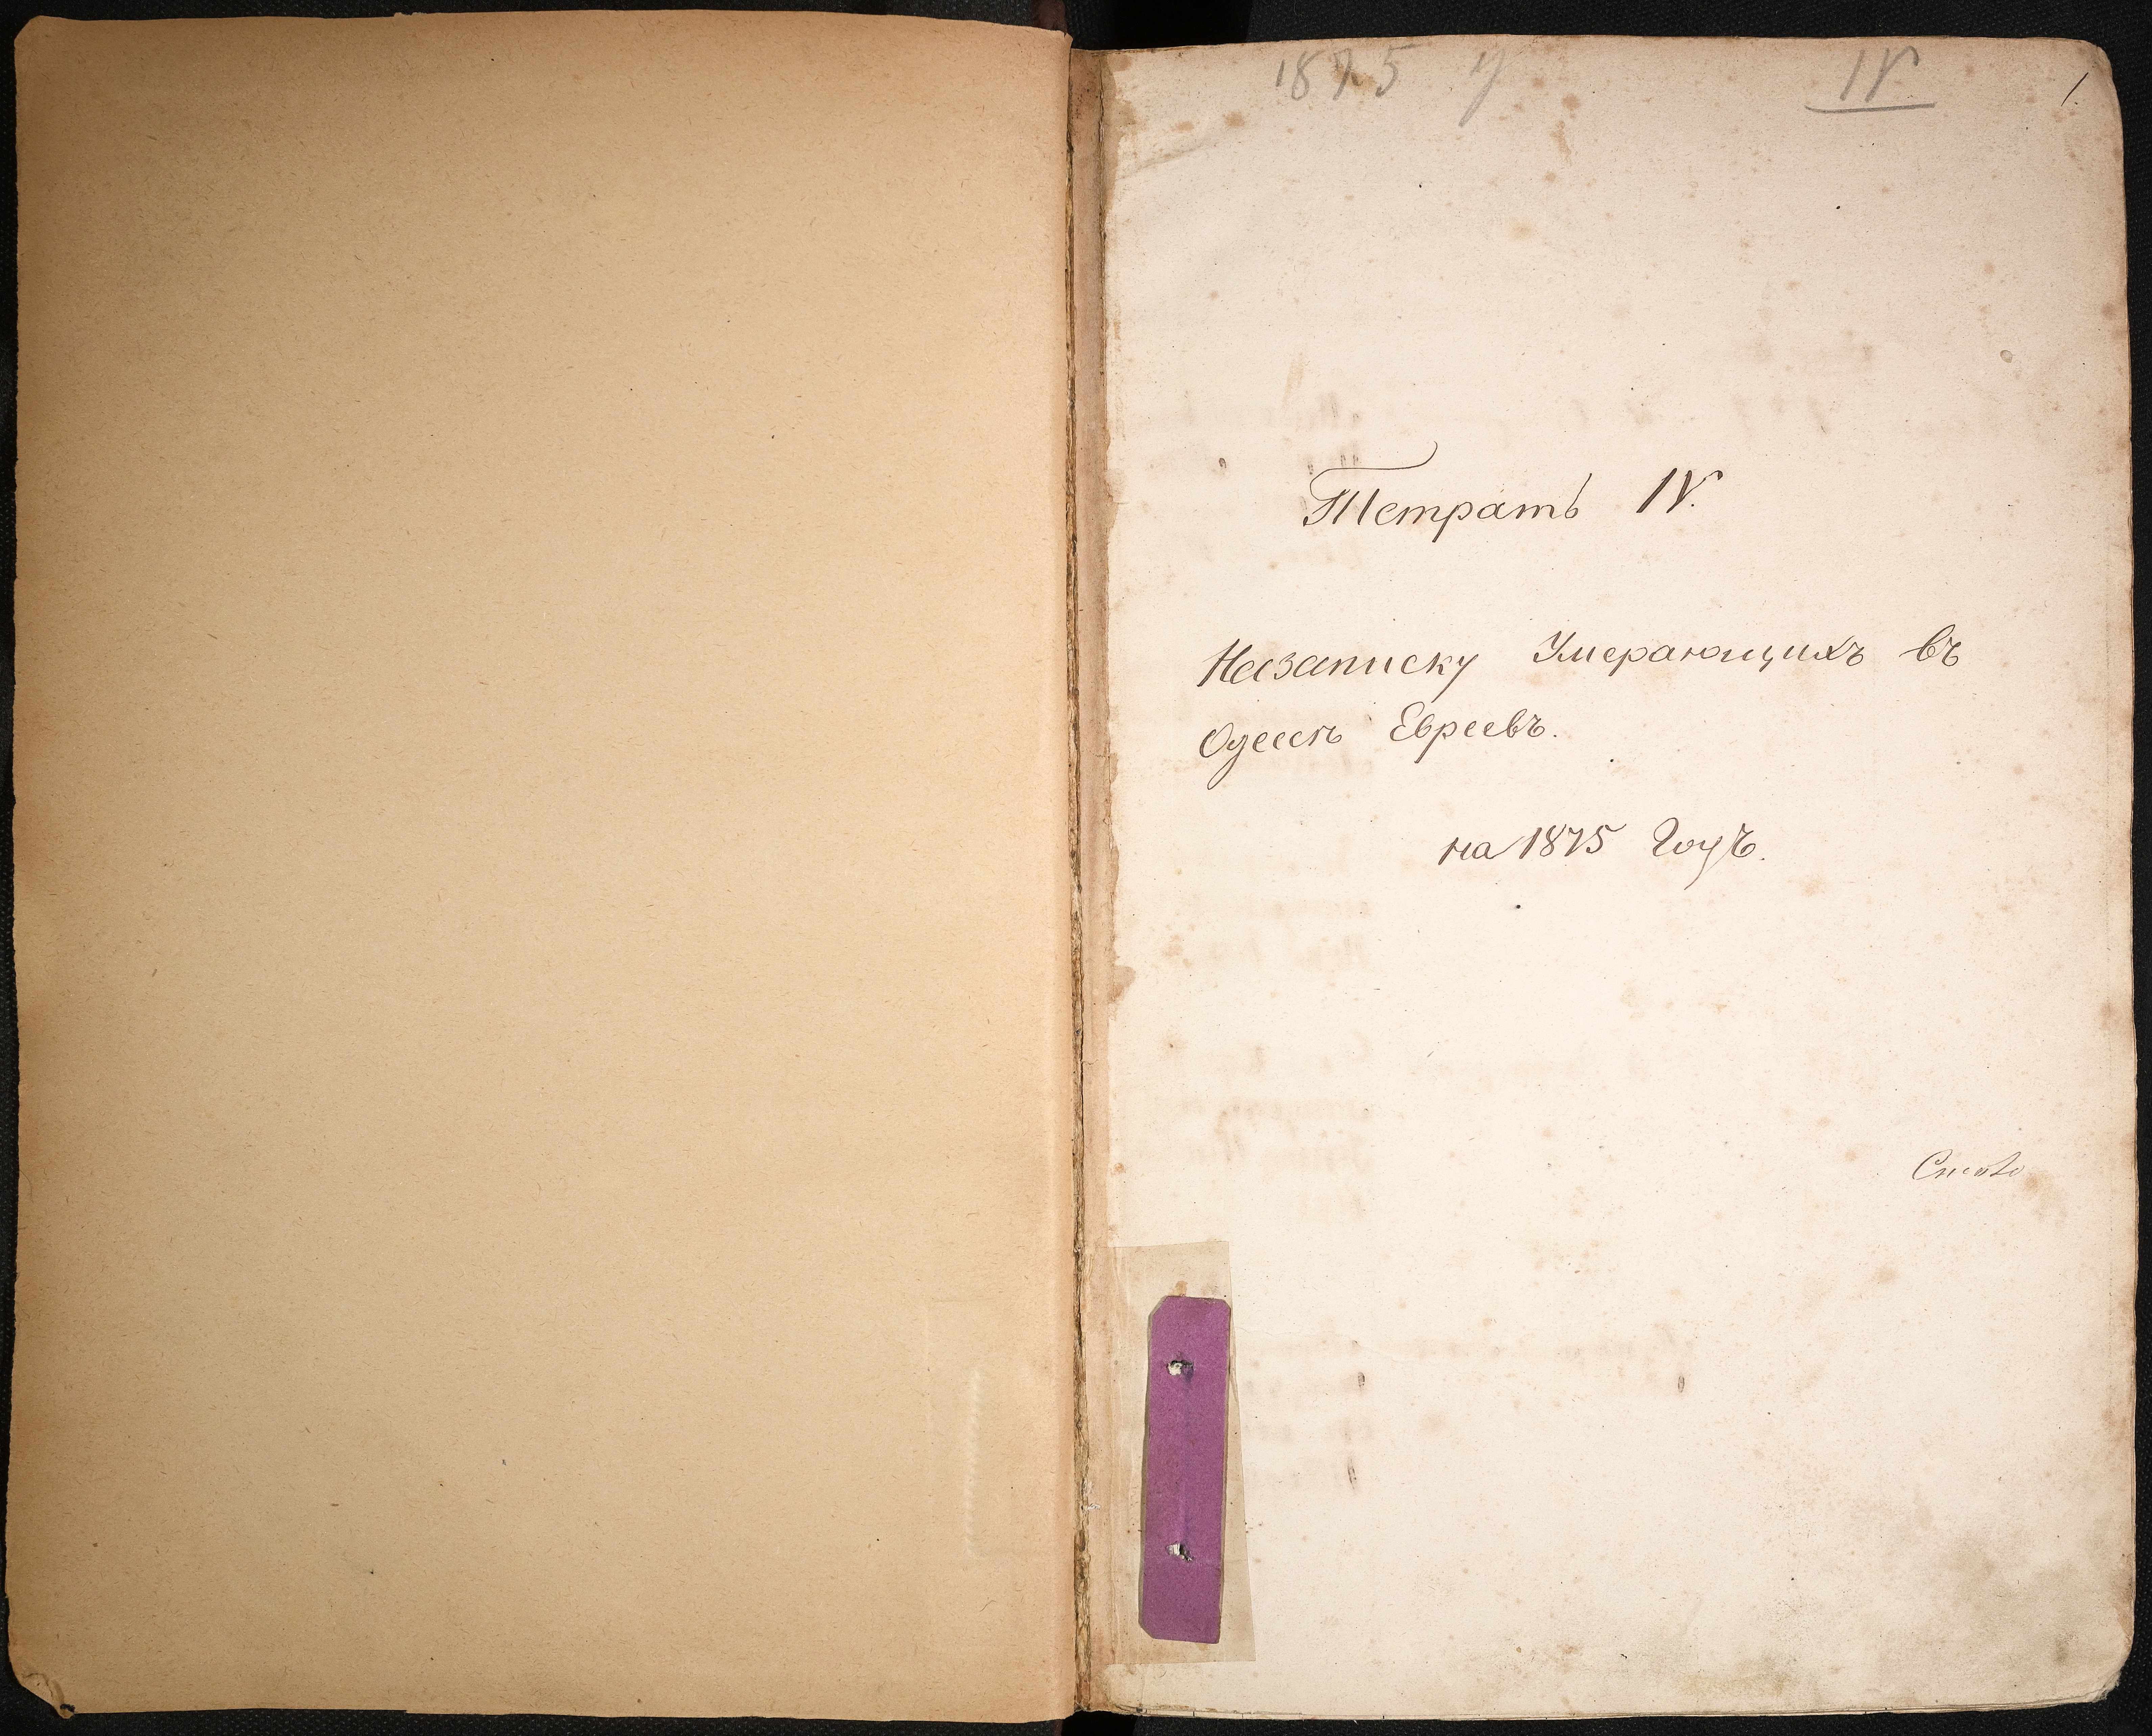 1875 у IV 1
Тетрать IV.
Назаписку Умерающихъ въ
Одессѣ Евреевъ.
на 1875 Годъ.